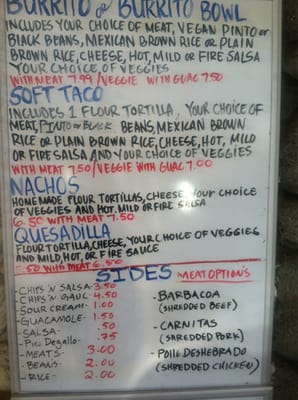 BURRITO or BURRITO BOWL
INCLUDES YOUR CHOICE OF MEAT, VEGAN PINTO or
BLACK BEANS, MEXICAN BROWN RICE OR PLAIN
BROWN RICE, CHEESE, HOT, MILD OR FIRE SALSA
YOUR CHOICE OF VEGGIES
WITH MEAT 7.99/VEGGIE WITH GUAC 7.50
SOFT TACO
INCLUDES 1 FLOUR TORTILLA, YOUR CHOICE OF
MEAT, PINTO or BLACK BEANS, MEXICAN BROWN
RICE OR PLAIN BROWN RICE, CHEESE, HOT, MILD
OR FIRE SALSA AND YOUR CHOICE OF VEGGIES
WITH MEAT 7.50/VEGGIE WITH GUAC 7.00
NACHOS
HOMEMADE FLOUR TORTILLAS, CHEESE, YOUR CHOICE
OF VEGGIES AND HOT, MILD OR FIRE SALSA
6.50 WITH MEAT 7.50
QUESADILLA
FLOUR TORTILLA, CHEESE, YOUR CHOICE OF VEGGIES
AND MILD, HOT, OR FIRE SAUCE
5.50 WITH MEAT 6.50
SIDES MEAT OPTIONS
-CHIPS 'N SALSA- 3.50
-CHIPS 'N GAUC- 4.50
-SOUR CREAM- 1.00
-GUACAMOLE- 1.50
-SALSA- .50
-PICO DEGALLO- .75
-MEATS- 3.00
-BEANS- 2.00
-RICE- 2.00
-BARBACOA
(SHREDDED BEEF)
-CARNITAS
(SHREDDED PORK)
-POLLO DESHEBRADO
(SHREDDED CHICKEN)